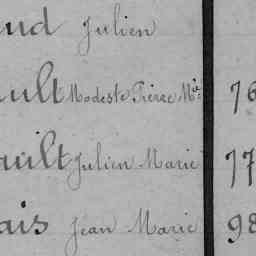 aud Julien
ault Modeste Pierre Mie 76
ault Julien Marie 77
ais Jean Marie 98